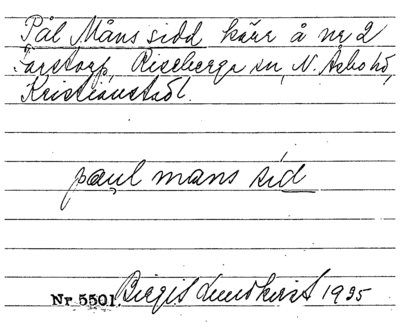 Pål Måns sidd kärr å nr 2
Farstorp, Riseberga sn, N. Åsbo hd,
Kristianstadl.
paul mans sid
Nr 5501 Birgit Lundkvist 1935